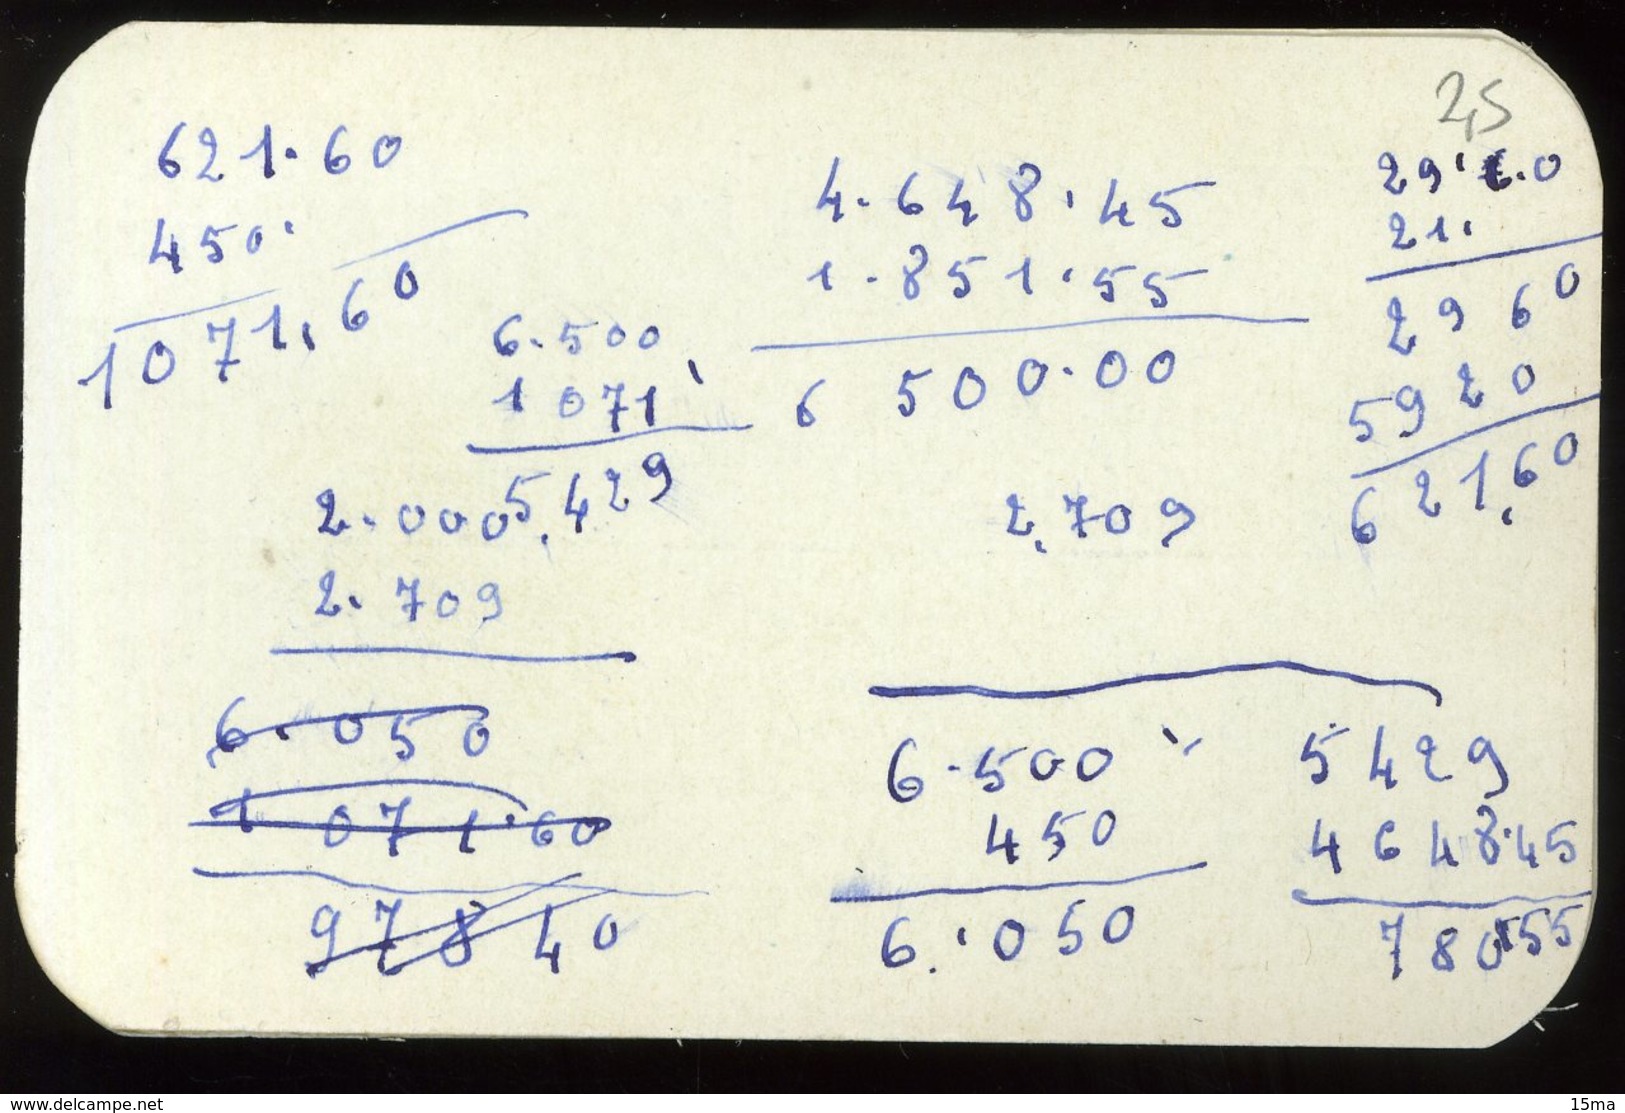 621.60
450.
1071.60
6.500
1071
5.429
2.000
2.709
6.050
1 071.60
978 40
4.648.45
1.851.55
6 500.00
2.709
6.500
450
6.050
25
29.0
21.
29 60
5920
621.60
5429
4648.45
780.55
www.delcampe.net
15ma